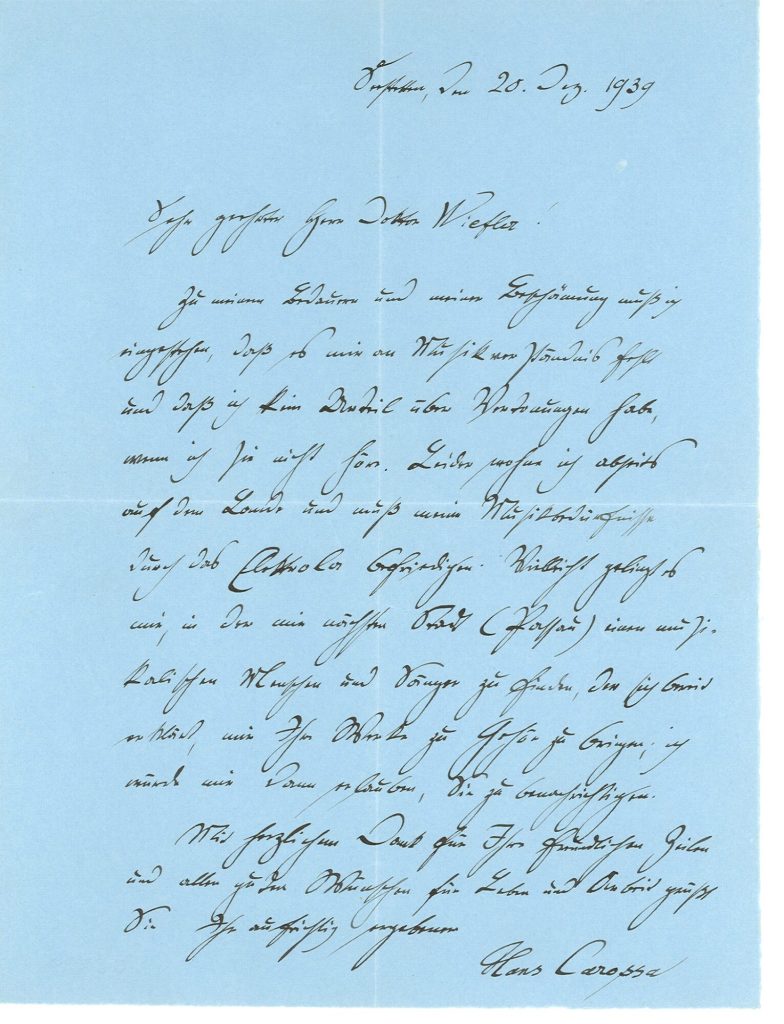 Seestetten, den 20. Dez. 1939
Sehr geehrter Herr Doktor
Zu meinem Bedauern und meiner Beschämung muß ich
eingestehen, daß es mir an Musikverständnis fehlt
und daß ich kein Urteil über Vertonungen habe,
wenn ich sie nicht höre. Leider wohne ich abseits
auf dem Lande und muß meine Musikbedürfnisse
durch das Elektrola befriedigen. Vielleicht gelingt es
mir, in der mir nächsten Stadt (Passau) einen musi-
kalischen Menschen und Sänger zu finden, der sich bereit
erklärt, mir Ihre Werke zu Gehör zu bringen; ich
würde mir dann erlauben, Sie zu benachrichtigen.
Mit herzlichem Dank für Ihre freundlichen Zeilen
und allen guten Wünschen für Leben und Arbeit grüßt
Sie Ihr aufrichtig ergebener
Hans Carossa